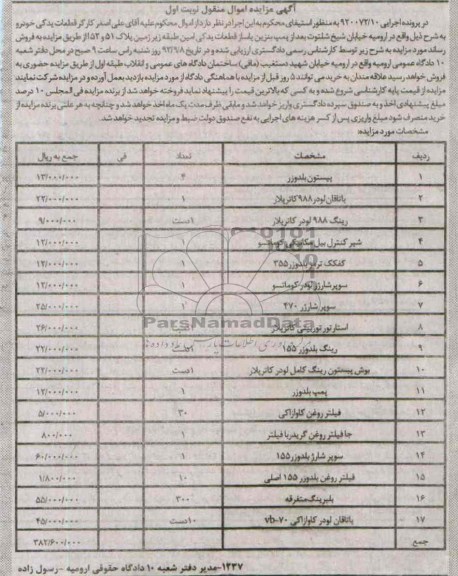 آگهی مزایده اموال منقول نوبت اول
در پرونده اجرایی ۹۲۰۰۷۲/۱۰ به منظور استیفای محکوم به این اجرا در نظر دارد از اموال محکوم علیه آقای علی اصغر کارگر قطعات یدکی خودرو
به شرح ذیل واقع در ارومیه خیابان شیخ شلتوت بعد از پمپ بنزین پاساژ قطعات یدکی امین طبقه زیرزمین پلاک ۵۱ و ۵۲ از طریق مزایده به فروش
رساند مورد مزایده به شرح زیر توسط کارشناس رسمی دادگستری ارزیابی شده و در تاریخ ۹۲/۹/۸ روز شنبه راس ساعت ۹ صبح در محل دفتر شعبه
۱۰ دادگاه عمومی ارومیه واقع در ارومیه خیابان شهید دستغیب (مافی) ساختمان دادگاه های عمومی و انقلاب طبقه اول از طریق مزایده حضوری به
فروش خواهد رسید علاقه مندان به خرید می توانند ۵ روز قبل از مزایده با هماهنگی دادگاه از مورد مزایده بازدید بعمل آورده و در مزایده شرکت نمایند
مزایده از قیمت پایه کارشناسی شروع شده و به کسی که بالاترین قیمت را پیشنهاد نماید فروخته خواهد شد از برنده مزایده فی المجلس ۱۰ درصد
مبلغ پیشنهادی اخذ و به صندوق سپرده دادگستری واریز خواهد شد و مابقی ظرف مدت یک ماه اخذ خواهد شد و چنانچه به هر علتی برنده مزایده از
خرید منصرف شود مبلغ واریزی پس از کسر هزینه های اجرایی به نفع صندوق دولت ضبط و مزایده تجدید خواهد شد.
مشخصات مورد مزایده:
ردیف مشخصات تعداد فی جمع به ریال
۱ پیستون بلدوزر ۴ ۱۳/۰۰۰/۰۰۰
۲ یاتاقان لودر ۹۸۸ کاترپلار ۱ ۲۲/۰۰۰/۰۰۰
۳ رینگ ۹۸۸ لودر کاترپلار ۱دست ۹/۰۰۰/۰۰۰
۴ شیر کنترل بیل مکانیکی کوماتسو ۱ ۱۲/۰۰۰/۰۰۰
۵ کفکک ترمز بلدوزر ۳۵۵ ۱ ۱۲/۰۰۰/۰۰۰
۶ سوپر شارژ لودر کوماتسو ۱ ۱۲/۰۰۰/۰۰۰
۷ سوپر شارژر ۴۷۰ ۱ ۲۵/۰۰۰/۰۰۰
ParsNamadData
۸ استارتور توربینی کاترپلار ۲۶/۰۰۰/۰۰۰
۹ رینگ بلدوزر ۱۵۵ ۳۲/۰۰۰/۰۰۰
۱۰ بوش پیستون رینگ کامل لودر کاترپلار ۱دست ۲۲/۰۰۰/۰۰۰
۱۱ پمپ بلدوزر ۱ ۱۲/۰۰۰/۰۰۰
۱۲ فیلتر روغن کاوازاکی ۳۰ ۵/۰۰۰/۰۰۰
۱۳ جا فیلتر روغن گریدر با فیلتر ۱ ۸۰۰/۰۰۰
۱۴ سوپر شارژ بلدوزر ۱۵۵ ۱ ۶۰/۰۰۰/۰۰۰
۱۵ فیلتر روغن بلدوزر ۱۵۵ اصلی ۱۰ ۱/۸۰۰/۰۰۰
۱۶ بلبرینگ متفرقه ۳۰۰ ۵۵/۰۰۰/۰۰۰
۱۷ یاتاقان لودر کاوازاکی vb-۷۰ ۱۰دست ۴۵/۰۰۰/۰۰۰
جمع ۳۸۲/۶۰۰/۰۰۰
۱۲۳۷-مدیر دفتر شعبه ۱۰ دادگاه حقوقی ارومیه - رسول زاده